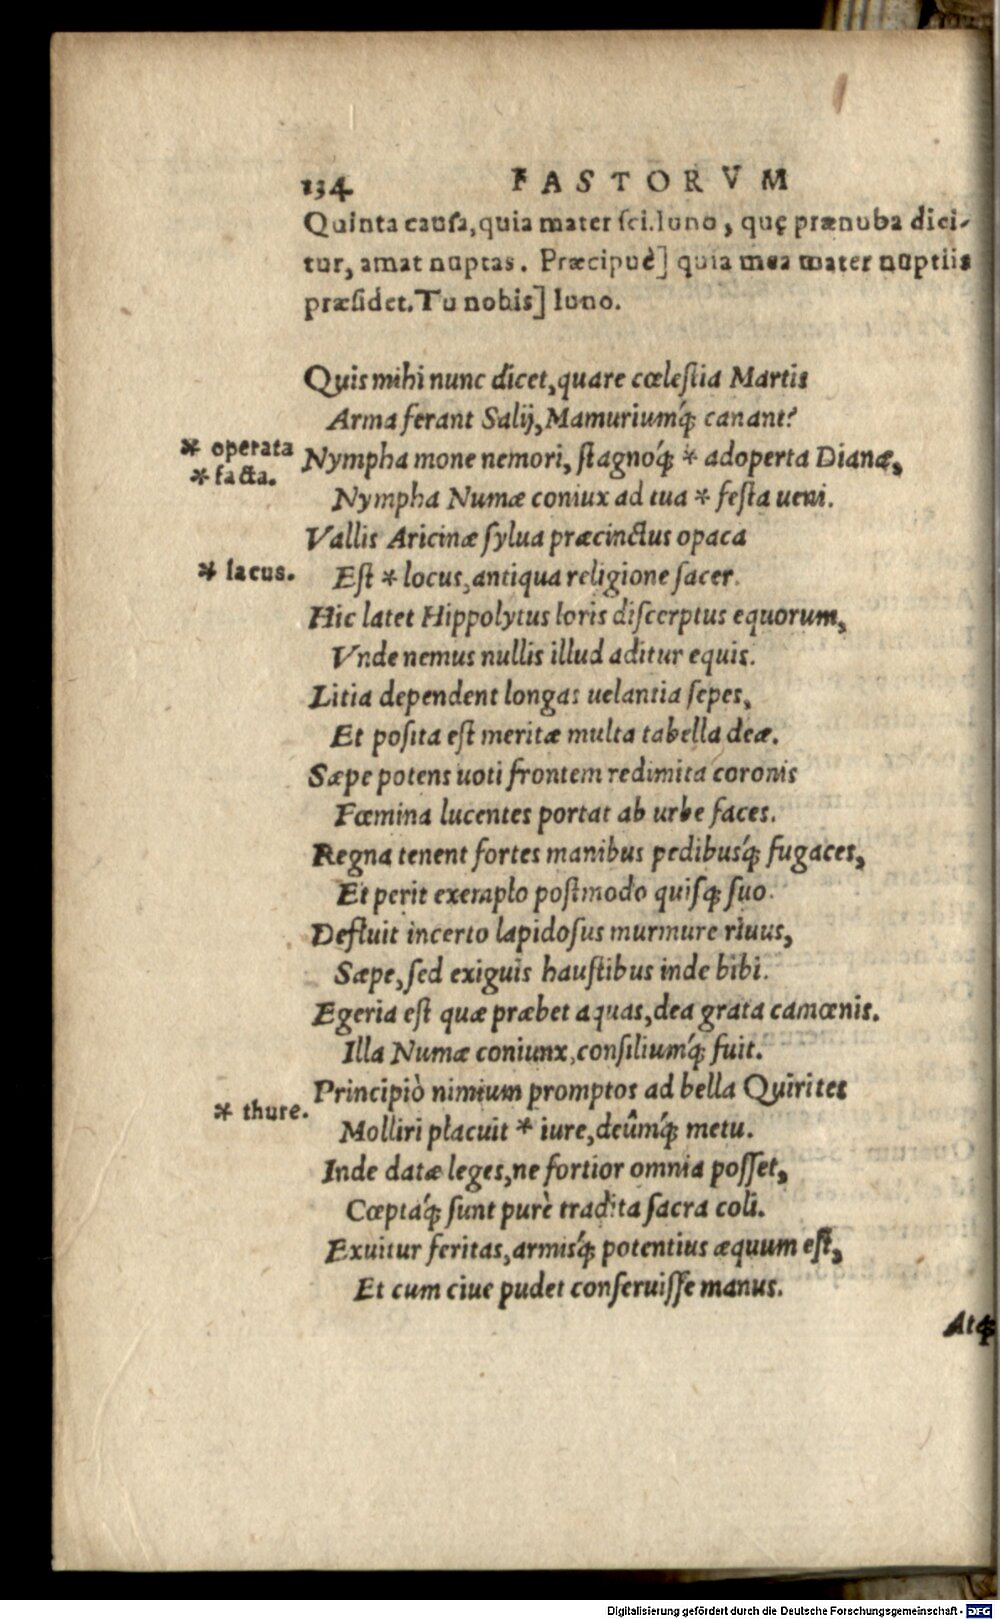 134 FASTORVM
Quinta causa, quia mater sci. Iuno, quę prænuba dici-
tur, amat nuptas. Præcipuè] quia mea mater nuptiis
præsidet. Tu nobis] Iuno.
Quis mihi nunc dicet, quare cœleſtia Martis
Arma ferant Salij, Mamuriumq́ꝫ canant?
* operata
Nympha mone nemori, ſtagnoq́ꝫ * adoperta Dianæ,
* facta.
Nympha Numæ coniux ad tua * feſta ueni.
Vallis Aricinæ ſylua præcinctus opaca
* lacus.
Eſt * locus, antiqua religione ſacer.
Hic latet Hippolytus loris diſcerptus equorum,
Vnde nemus nullis illud aditur equis.
Litia dependent longas uelantia ſepes,
Et poſita eſt meritæ multa tabella deæ.
Sæpe potens uoti frontem redimita coronis
Fœmina lucentes portat ab urbe faces.
Regna tenent fortes manibus pedibusq́ꝫ fugaces,
Et perit exemplo poſtmodo quiſqꝫ ſuo.
Defluit incerto lapidoſus murmure riuus,
Sæpe, ſed exiguis hauſtibus inde bibi.
Egeria eſt quæ præbet aquas, dea grata camœnis.
Illa Numæ coniunx, conſiliumq́ꝫ fuit.
Principiò nimium promptos ad bella Quirites
* thure.
Molliri placuit * iure, deûmq́ꝫ metu.
Inde datæ leges, ne fortior omnia poſſet,
Cœptaq́ꝫ ſunt purè tradita ſacra coli.
Exuitur feritas, armisq́ꝫ potentius æquum eſt,
Et cum ciue pudet conſeruiſſe manus.
Atqꝫ
Digitalisierung gefördert durch die Deutsche Forschungsgemeinschaft - DFG